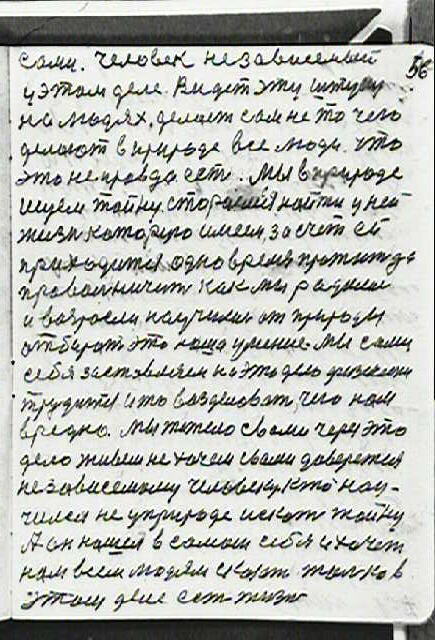 56
сами. Человек независемый
у этом деле. Видет эту штуку
на людях, делает сам не то чего
делают в природе все люди. Что
это не правда ест. Мы в природе
ищем тайну стораемся найти у ней
жизн которую имеем, за счет ей
приходится одно время
как мы радилис
и возросли научилис от природы
отбират это наша умение. Мы сами
себя заставляем на это дело физически
трудится и то возделоват, чего нам
вредно. Мы тежело своими через это
дело живем не хочем своим доверется
независемому человеку, кто нау-
чился не у природе искат тайну
А он нашел в самом себе и хочет
нам всем людям сказат толко в
этом деле ест жизн